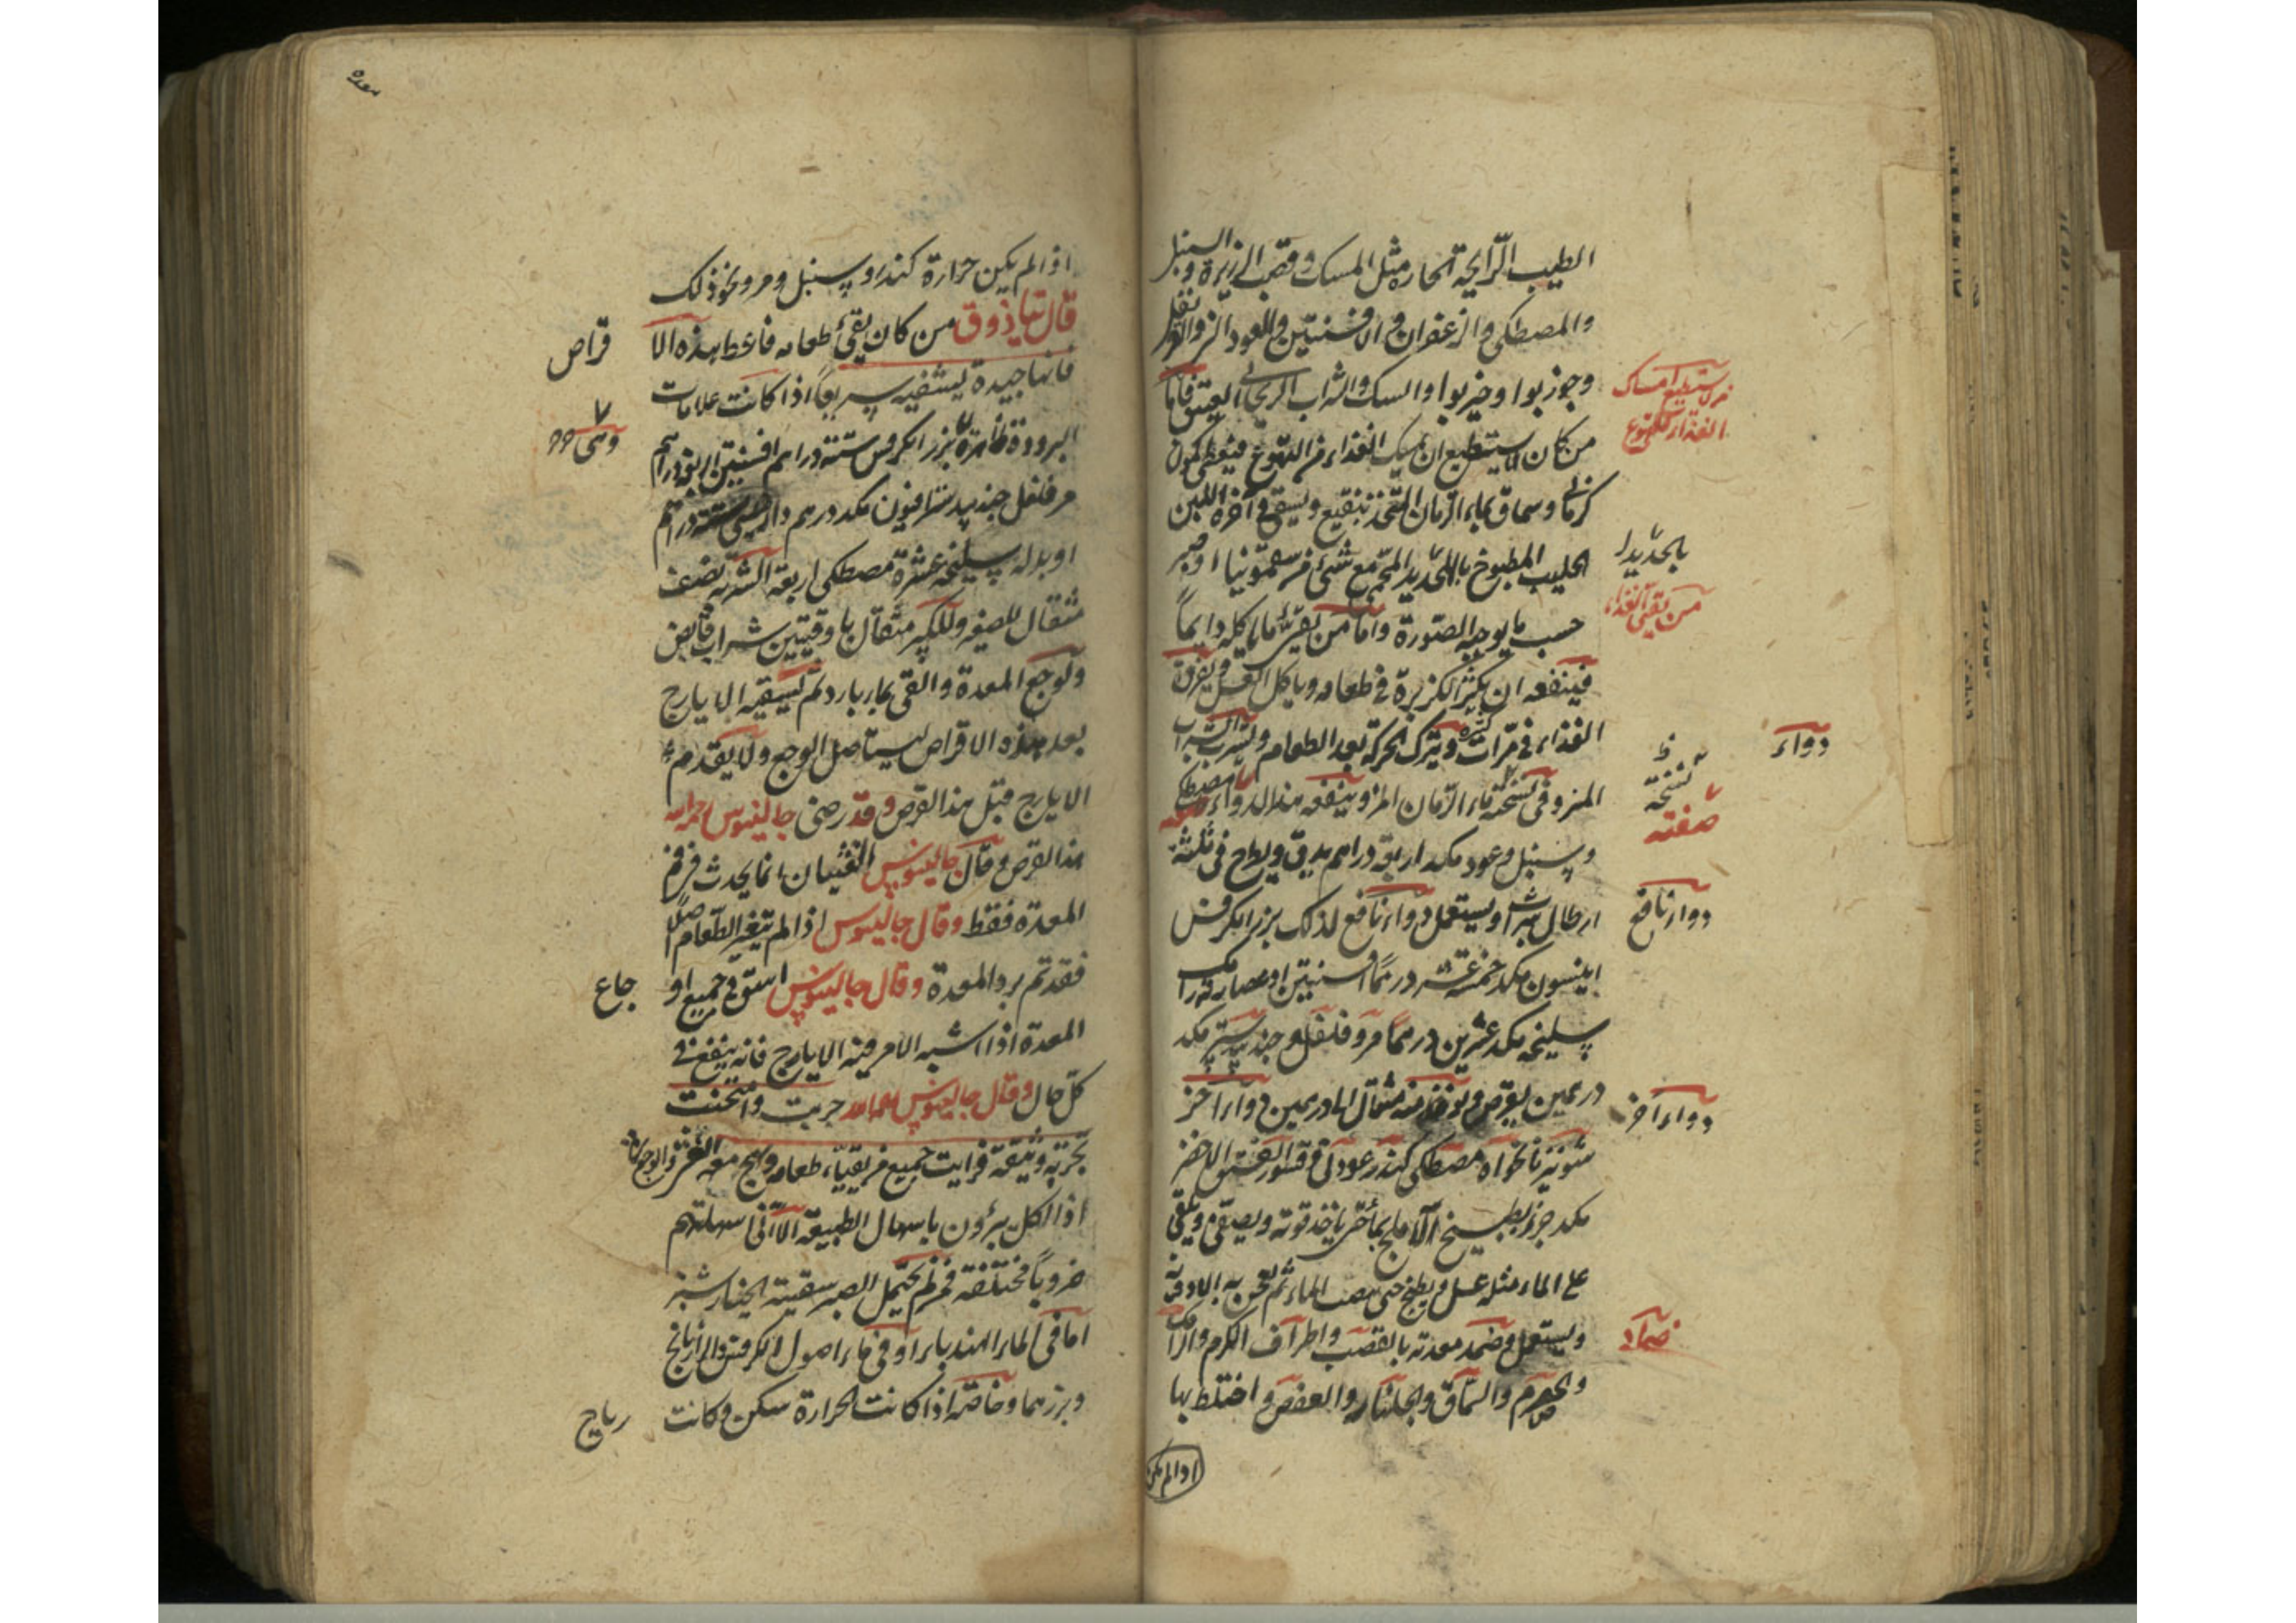 الطيب الرايحة الحارة مثل المسك وقصب الذريرة والسنبل
والمصطكى والزعفران والافسنتين والعود
وجوز بوا وخير بوا والسك والشراب الريحانى العتيق فاما
من كان لا يستطيع ان يمسك الغذاء من التهوع فيعطى كمون
كرمانى وسماق بماء الرمان ويسقى اخره اللبن
الحليب المطبوخ بالحديد المحمى مع شئ من سقمونيا او صبر
حسب ما يوجبه الصورة واما من يقئ ما ياكله دايماً
فينفعه ان يكثر الكزبرة فى طعامه وياكل ويفرق
الغذاء فى مرات كثيرة ويترك الحركة بعد الطعام ويشرب الشراب
المز وفى نسخة ماء الرمان المز وينفعه هذا الدواء صفته مصطكى
وسنبل وعود مكد اربعة دراهم يدق ويطرح فى ثلثة
ارطال شراب ويستعمل دواء نافع لذلك بزر الكرفس
انيسون مكد خمسة عشر درهماً افسنتين او عصارته
سليخه مكد عشرين درهماً مر وفلفل وجندبيدستر مكد
درهمين يقرص ويؤخذ منه مثقال الى درهمين دواء اخر
شونيز نانخواه مصطكى كندر عود نى قشور الفستق الاخضر
مكد جزء بطبيخ الاملج بماء حتى ياخذ قوته ويصفى ويلقى
على الماء مثله عسل ويطبخ حتى ينصب الماء ثم يعجن به الادوية
ويستعمل وضمد معدته بالقصب واطراف الكرم
والحصرم والسماق والجلنار والعفص واخلط بها
من لا يستطيع امساك
الغذاء للتهوع
بالحديد
من يقئ الغذاء
دواء
ظ
نسخته
صفته
دواء نافع
دواء اخر
ضماد
اذا لم يكن
معده
اذا لم يكن حرارة كندر وسنبل ومر ونحو ذلك
قال تياذوق من كان يقئ طعامه فاعطه هذه الا
قراص
فانها جيدة يشفيه سريعاً اذا كانت علامات
البرودة ظاهرة بزر الكرفس ستة دراهم افسنتين اربعة دراهم
وهى
مر فلفل جندبيدستر افيون مكد درهم دارصينى ستة دراهم
او بدله سليخه عشرة مصطكى اربعة الشربة نصف
مثقال للصغير وللكبير مثقال باوقيتين شراب قابض
ولوجع المعدة والقئ بماء بارد ثم يسقيه الايارج
بعد هذه الاقراص ليستاصل الوجع ولا يقدم
الايارج قبل هذا القرص وقد رضى جالينوس رحمه الله
هذا القرص وقال جالينوس الغثيان انما يحدث من فم
المعدة فقط وقال جالينوس اذا لم يتغير الطعام اصلاً
فقد تم برد المعدة وقال جالينوس اسق فى جميع او
جاع
المعدة اذا اشتبه الامر فيه الايارج فانه ينفع فى
كل حال وقال جالينوس رحمه الله جربت وامتحنت
تجربة وثيقة فرايت جميع من يقيا طعامه ويهيج معه
اذا اكل يبرؤن باسهال الطبيعة الا انى اسهلتهم
ضروباً مختلفة فمن لم يحتمل الصبر سقيته الخيارشنبر
اما فى الماء الهندباء او فى ماء اصول الكرفس والرازيانج
وبزرهما وخاصة اذا كانت الحرارة سكن وكانت
رياح